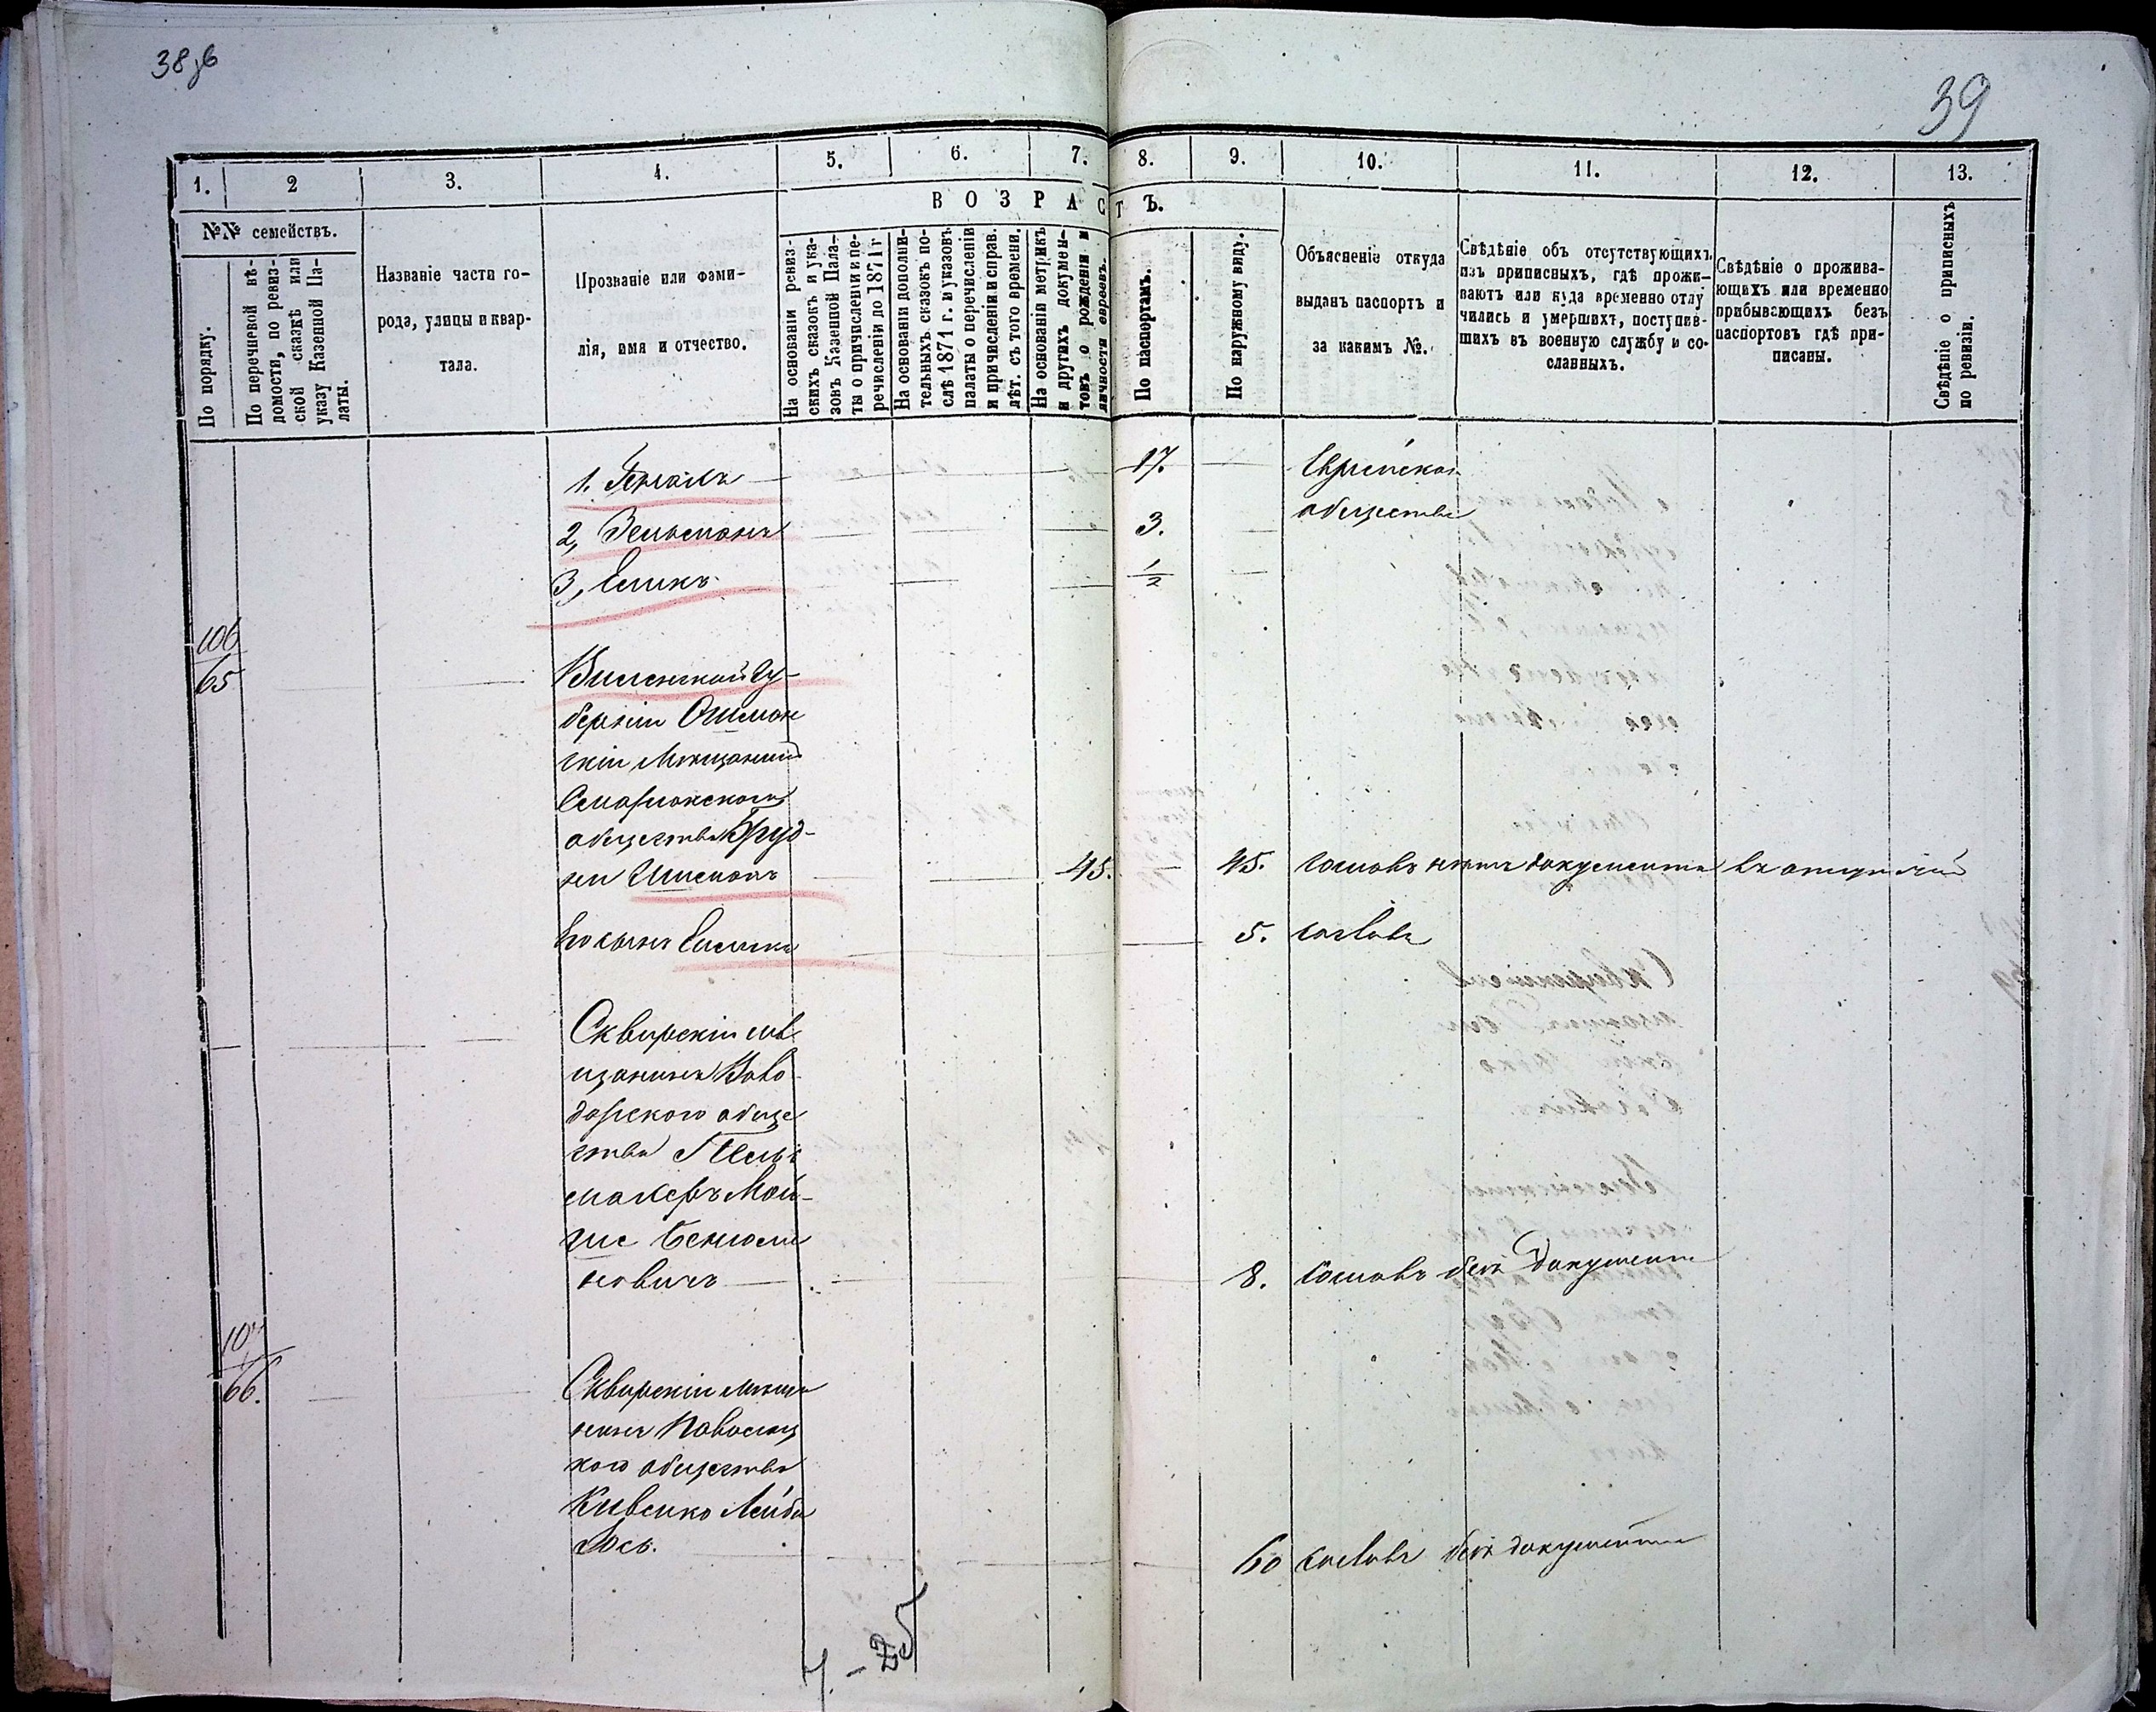 38 об
39
1.
2
3.
4.
5.
6.
7.
8.
9.
10.
11.
12.
13.
ВОЗРАСТЪ.
№№ семействъ.
По порядку.
По перечневой вѣ-
домости, по ревиз-
ской сказкѣ или
указу Казенной Па-
латы.
Названіе части го-
рода, улицы и квар-
тала.
Прозваніе или фами-
лія, имя и отчество.
На основаніи ревиз-
скихъ сказокъ и ука-
зовъ Казенной Пала-
ты о причисленіи и пе-
речисленіи до 1871 г
На основаніи дополни-
тельныхъ сказокъ по-
слѣ 1871 г. и указовъ
палаты о перечисленіи
и причисленіи и справ.
лѣт. съ того времени.
На основаніи метрикъ
и другихъ докумен-
товъ о рожденіи и
личности евреевъ.
По паспортамъ.
По наружному виду.
Объясненіе откуда
выданъ паспортъ и
за какимъ №.
Свѣдѣніе объ отсутствующихъ
изъ приписныхъ, гдѣ прожи-
ваютъ или куда временно отлу
чились и умершихъ, поступив-
шихъ въ военную службу и со-
сланныхъ.
Свѣдѣніе о прожива-
ющихъ или временно
прибывающихъ безъ
паспортовъ гдѣ при-
писаны.
Свѣдѣніе о приписныхъ
по ревизіи.
1. 17. Еврейскаго
2, Зельманъ 3. общества
3, 1/2
106
65
Виленской Гу-
берніи Ошмян
скій Мѣщанинъ
Сморгонскаго
общества
Шлемонъ 45. 45.
Его сынъ 5.
Сквирскій мѣ
щанинъ Воло-
дарского обще
ства
Мой-
ше Бенюми
новичъ 8. безъ документа
107
66.
Сквирскій мѣща
нинъ
кого общества
Кивенко Лейба
Іось. 60 безъ документа
7. - 25